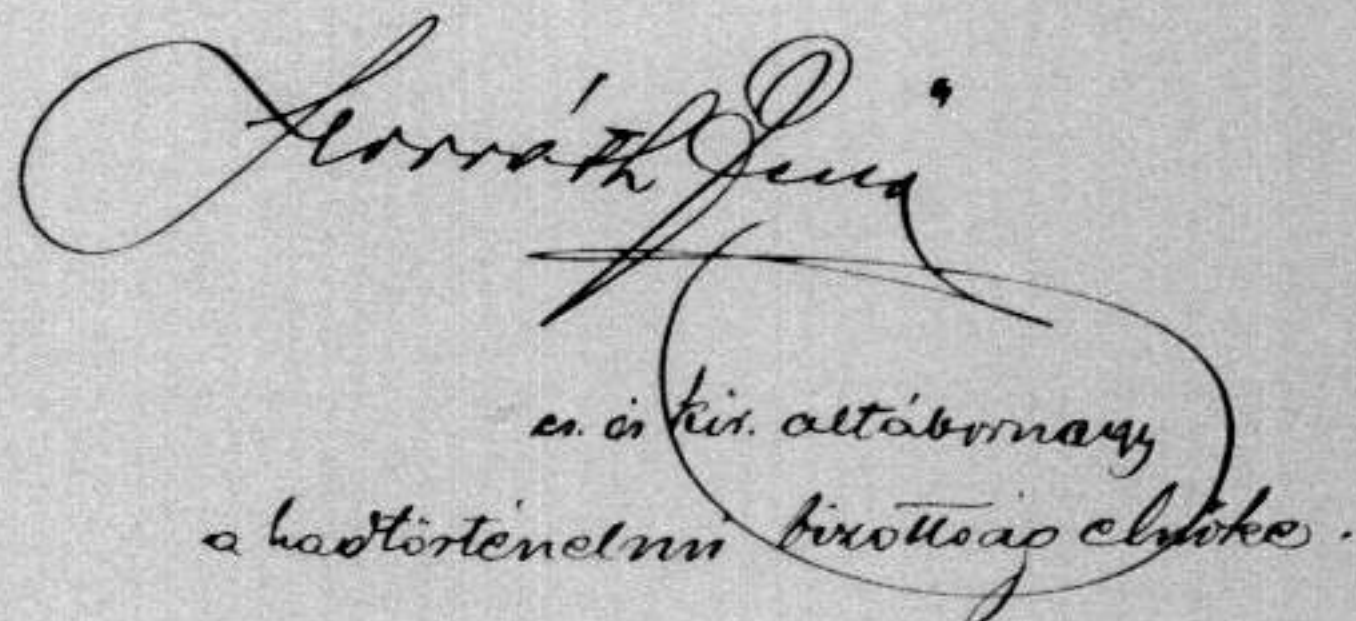 Horváth Jenő
cs. és kir. altábornagy
a hadtörténelmi bizottság elnöke.